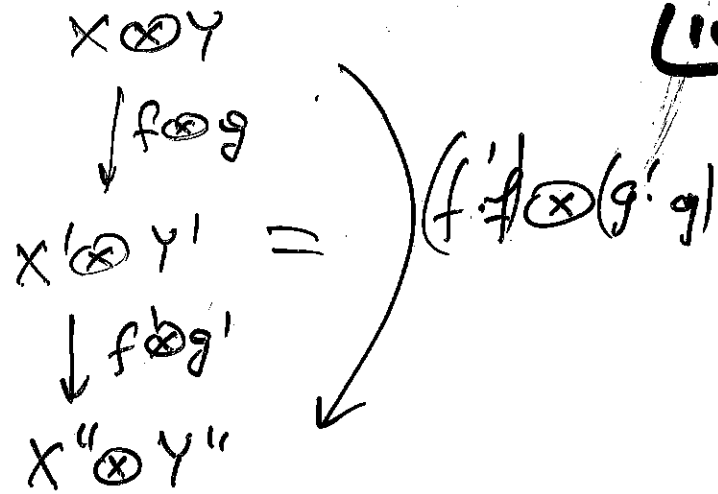 X ⊗ Y
f ⊗ g
X' ⊗ Y' = (f'·f) ⊗ (g'·g)
f' ⊗ g'
X'' ⊗ Y''